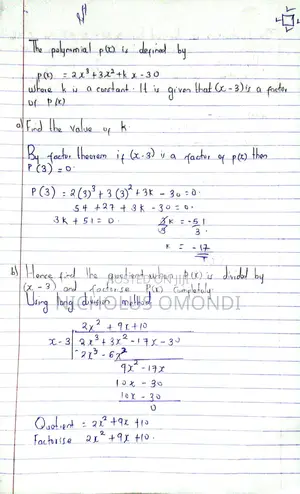 The polynomial p(x) is defined by
p(x) = 2x³ + 3x² + kx - 30
where k is a constant. It is given that (x - 3) is a factor
of P(x)
a) Find the value of k
By factor theorem if (x-3) is a factor of p(x) then
P(3) = 0.
P(3) = 2(3)³ + 3(3)² + 3k - 30 = 0.
54 + 27 + 3k - 30 = 0.
3k + 51 = 0. 3k = -51
3 3.
k = -17
b) Hence find the quotient when P(x) is divided by
(x - 3) and factorise P(x) completely
HOSTED ON JIJI
NICHOLUS OMONDI
Using long division method
2x² + 9x + 10
x - 3 2x³ + 3x² - 17x - 30
2x³ - 6x²
9x² - 17x
10x - 30
10x - 30
0
Quotient = 2x² + 9x + 10
Factorise 2x² + 9x + 10.